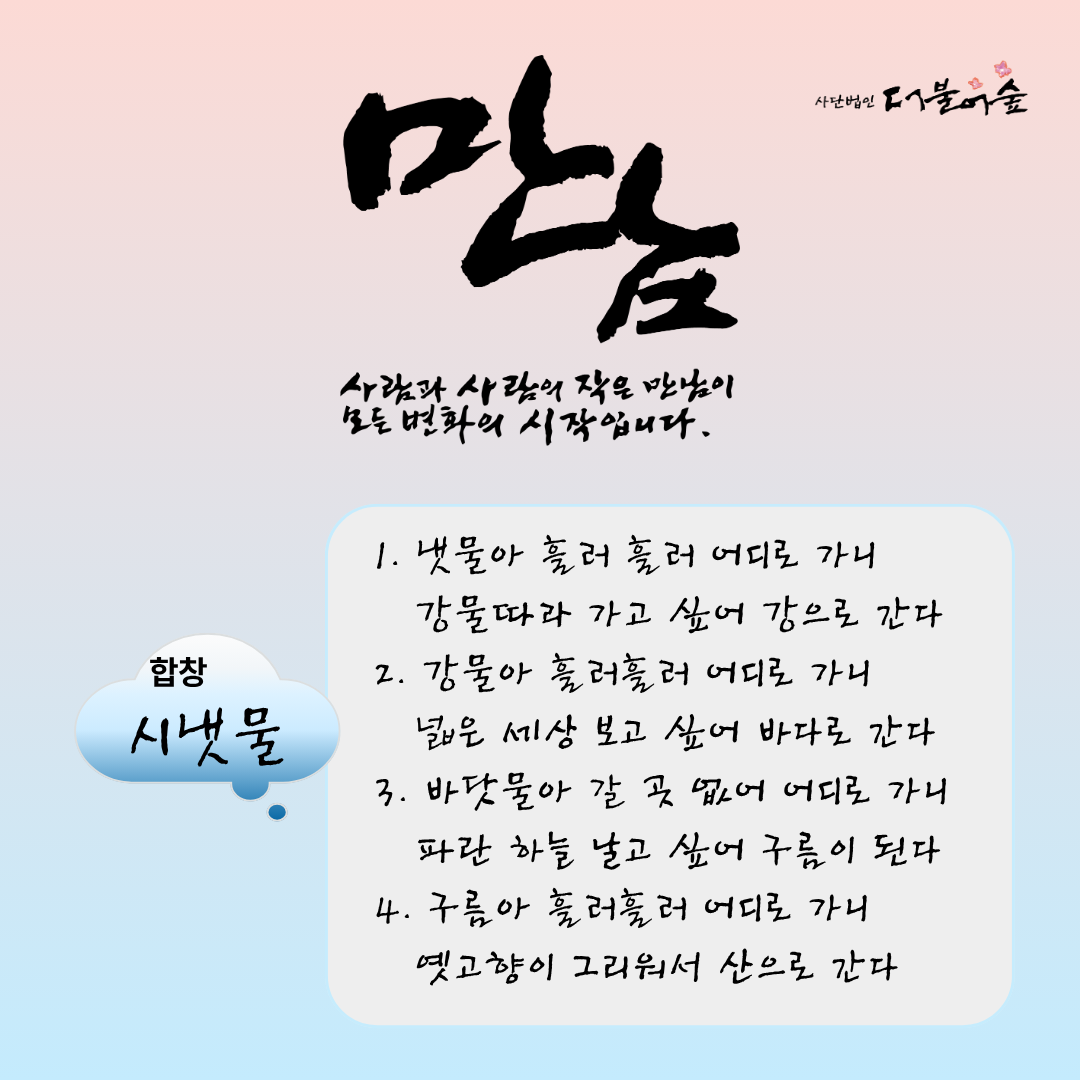 만남
사단법인 더불어숲
사람과 사람의 작은 만남이
모든 변화의 시작입니다.
합창
시냇물
1. 냇물아 흘러 흘러 어디로 가니
강물따라 가고 싶어 강으로 간다
2. 강물아 흘러흘러 어디로 가니
넓은 세상 보고 싶어 바다로 간다
3. 바닷물아 갈 곳 없어 어디로 가니
파란 하늘 날고 싶어 구름이 된다
4. 구름아 흘러흘러 어디로 가니
옛고향이 그리워서 산으로 간다